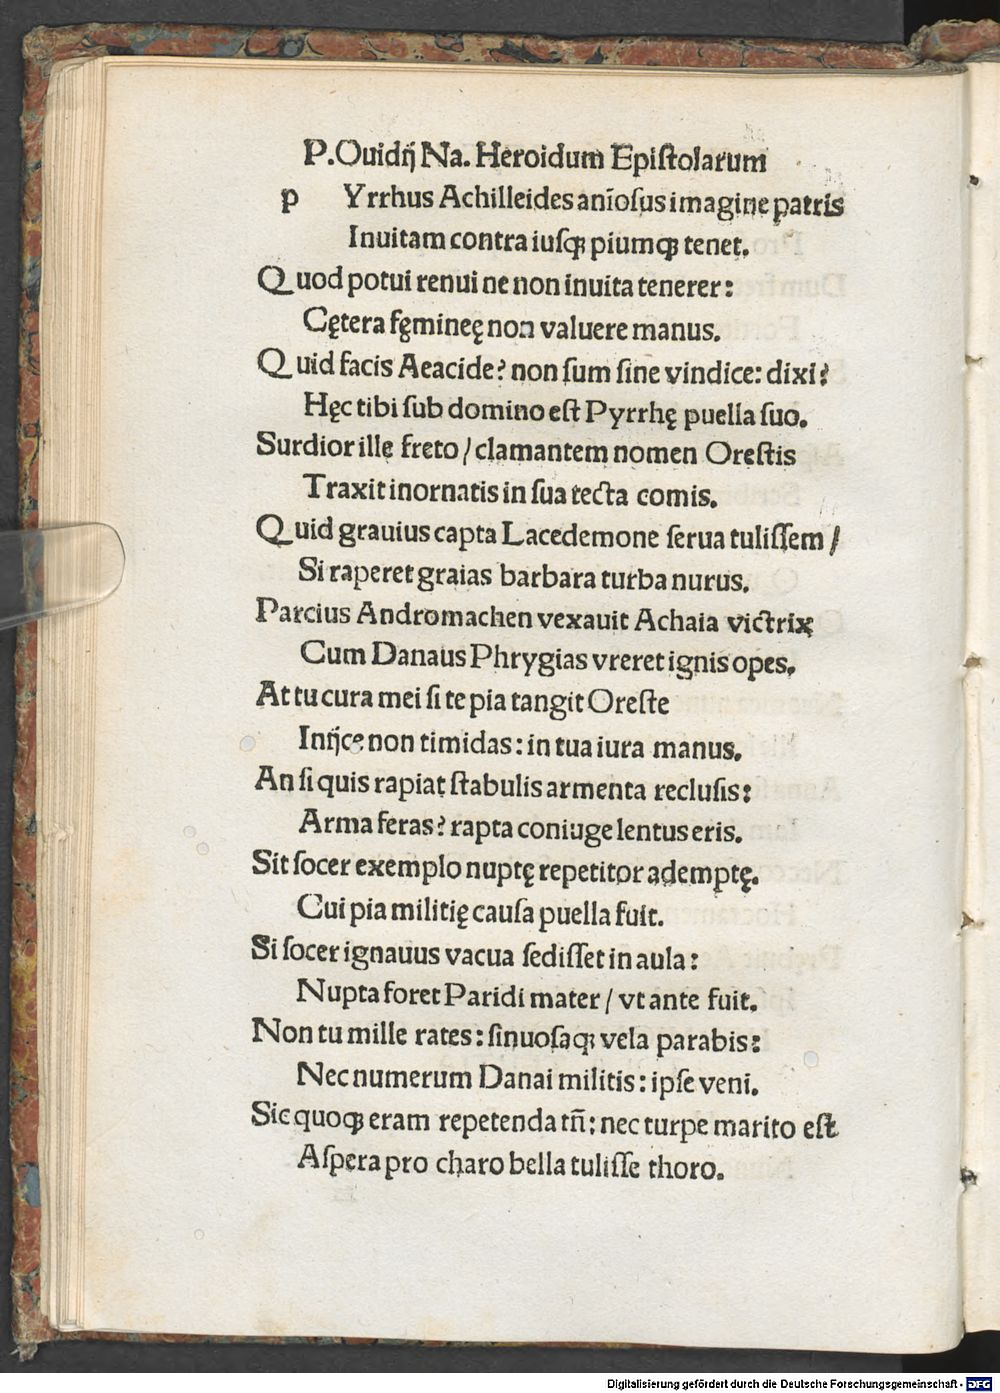 P. Ouidĳ Na. Heroidum Epiſtolarum
p Yrrhus Achilleides anīoſus imagine patris
Inuitam contra iuſqꝫ piumqꝫ tenet.
Quod potui renui ne non inuita tenerer:
Cętera fęmineę non valuere manus.
Quid facis Aeacide? non ſum ſine vindice: dixi?
Hęc tibi ſub domino eſt Pyrrhę puella ſuo.
Surdior ille freto / clamantem nomen Oreſtis
Traxit inornatis in ſua tecta comis.
Quid grauius capta Lacedemone ſerua tuliſſem /
Si raperet graias barbara turba nurus.
Parcius Andromachen vexauit Achaia victrix
Cum Danaus Phrygias vreret ignis opes.
At tu cura mei ſi te pia tangit Oreſte
Inĳce non timidas: in tua iura manus.
An ſi quis rapiat ſtabulis armenta recluſis:
Arma feras? rapta coniuge lentus eris.
Sit ſocer exemplo nuptę repetitor ademptę.
Cui pia militię cauſa puella fuit.
Si ſocer ignauus vacua ſediſſet in aula:
Nupta foret Paridi mater / vt ante fuit.
Non tu mille rates: ſinuoſaqꝫ vela parabis:
Nec numerum Danai militis: ipſe veni.
Sic quoqꝫ eram repetenda tñ: nec turpe marito eſt
Aſpera pro charo bella tuliſſe thoro.
Digitalisierung gefördert durch die Deutsche Forschungsgemeinschaft - DFG